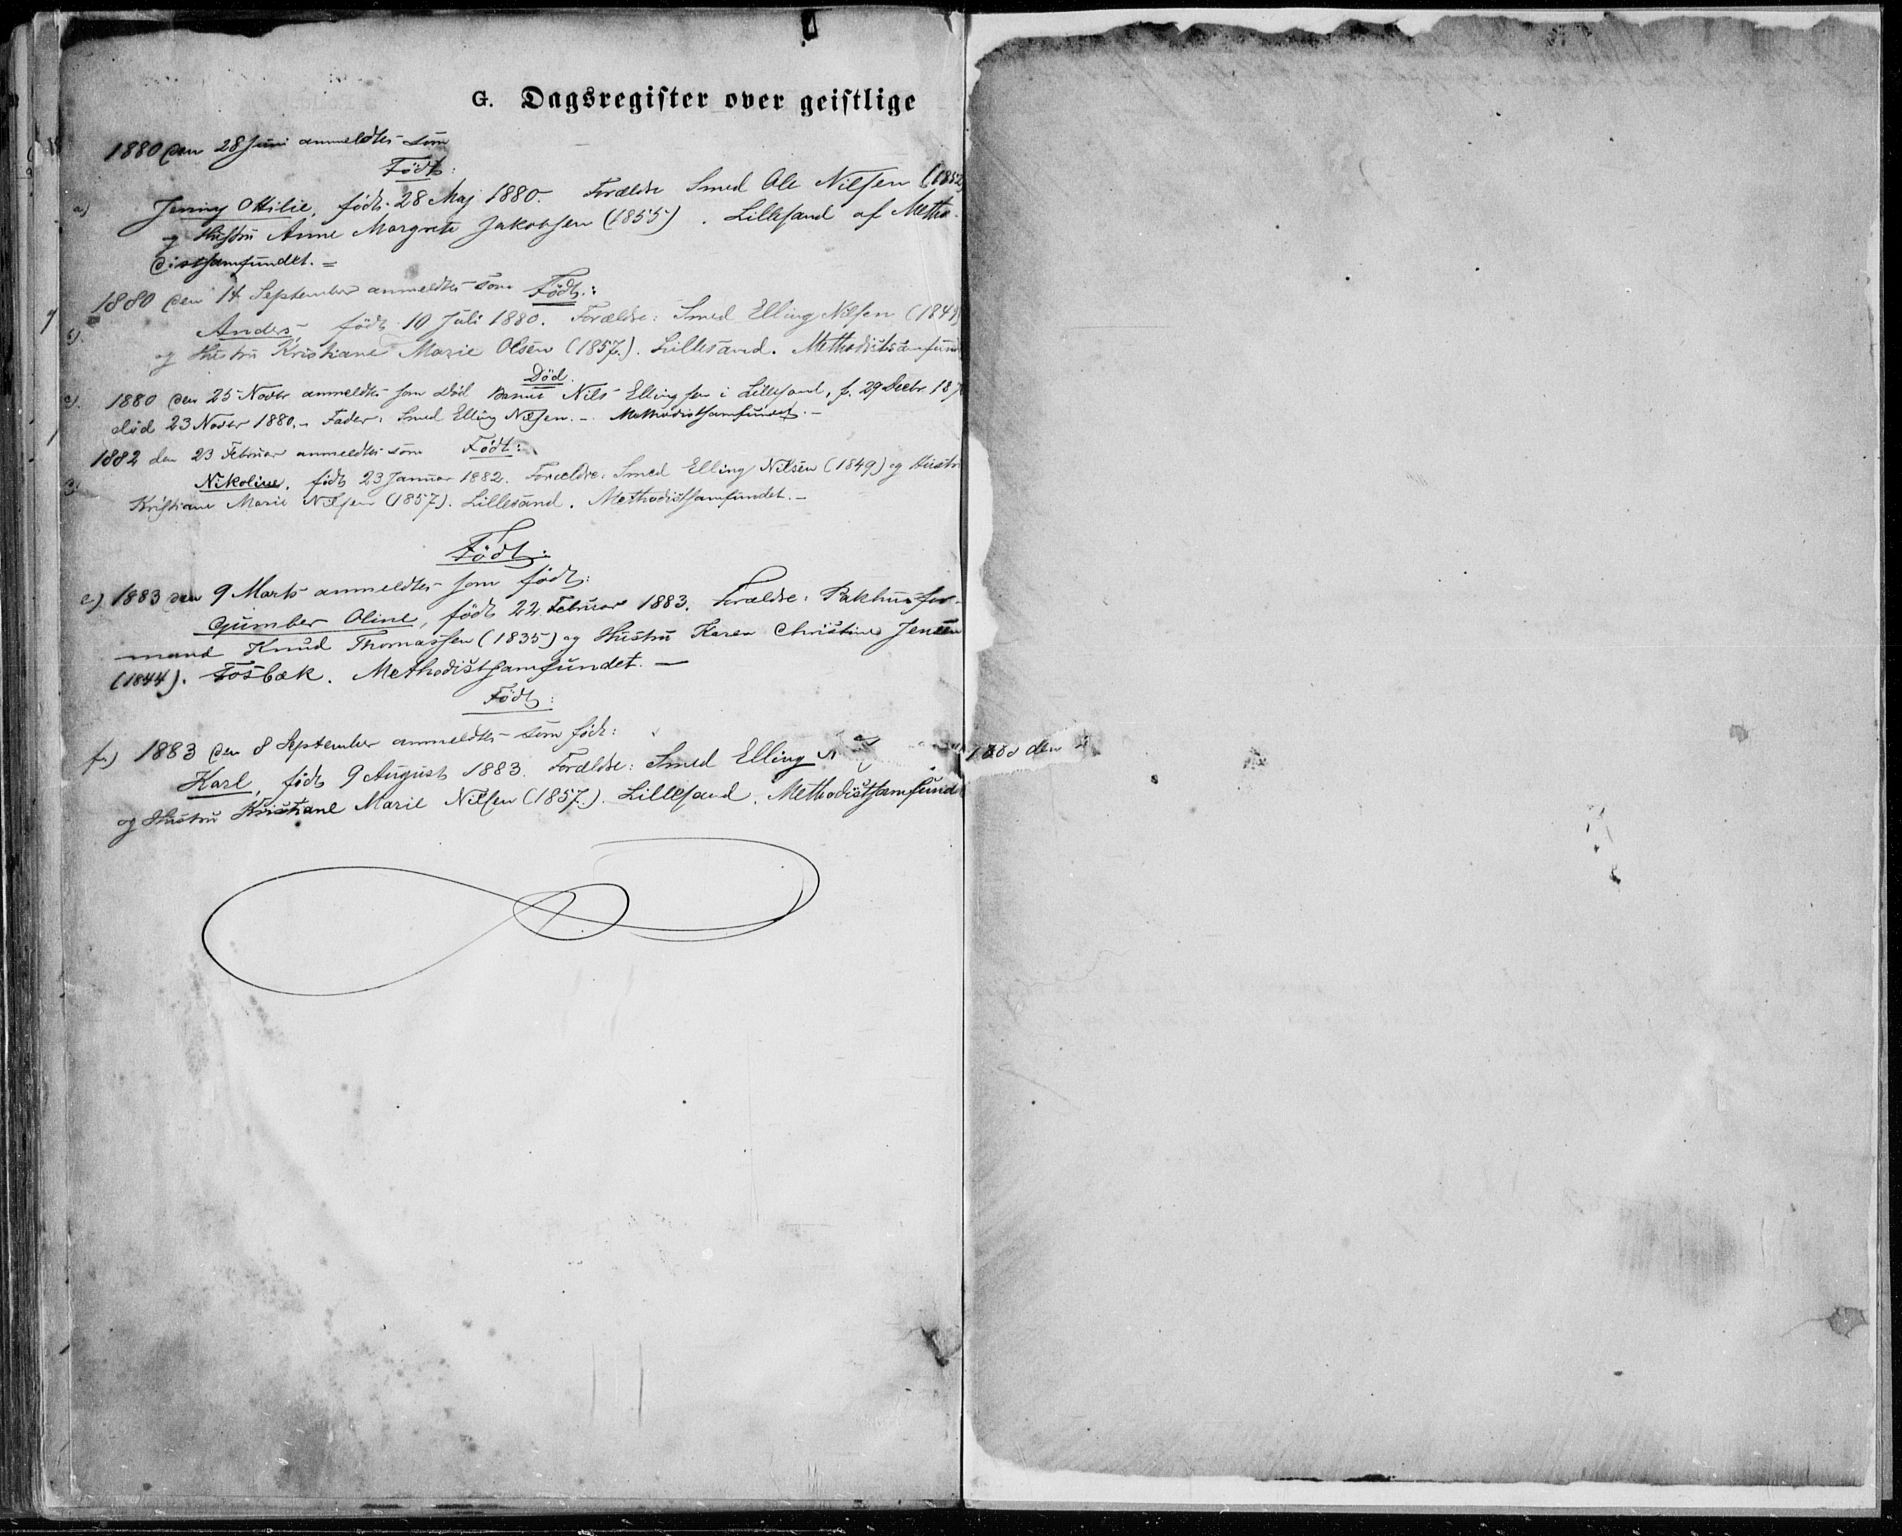 G. Dagsregister over geistlige
1880 den 28 Juni anmeldtes som
Født:
a) Jenny Otilie, født 28 Maj 1880. Forældre Smed Ole Nilsen (1852)
og Hustru Anne Margrete Jakobsen (1855). Lillesand af Metho-
distsamfundet. =
1880 den 14 September anmeldtes som Født:
b). Anders, født 10 Juli 1880. Forældre: Smed Elling Nilsen (1849)
og Hustru Kristiane Marie Olsen (1857.). Lillesand. Methodistsamfund
Død.
c). 1880 den 25 Novbr anmeldtes som død Barnet Nils Ellingsen i Lillesand, f. 29 Decbr. 187
død 23 Novbr 1880. – Fader: Smed Elling Nilsen. – Methodistsamfundet. –
1882 den 23 Februar anmeldtes som Født:
Nikoline, født 23 Januar 1882. Forældre: Smed Elling Nilsen (1849) og Hustru
Kristiane Marie Nilsen (1857). Lillesand. Methodistsamfundet. –
Født:
e.) 1883 den 9 Marts anmeldtes som født:
Gumber Oline, født 22 Februar 1883. Forældre: Pakhusfor-
mand Knud Thomassen (1835) og Hustru Karen Christine Jensen
(1844). Fosbæk. Methodistsamfundet. —
Født:
f.) 1883 den 8 September anmeldtes som født:
Karl, født 9 August 1883. Forældre: Smed Elling
og Hustru Kristiane Marie Nilsen (1857.). Lillesand. Methodistsamfund
188 den